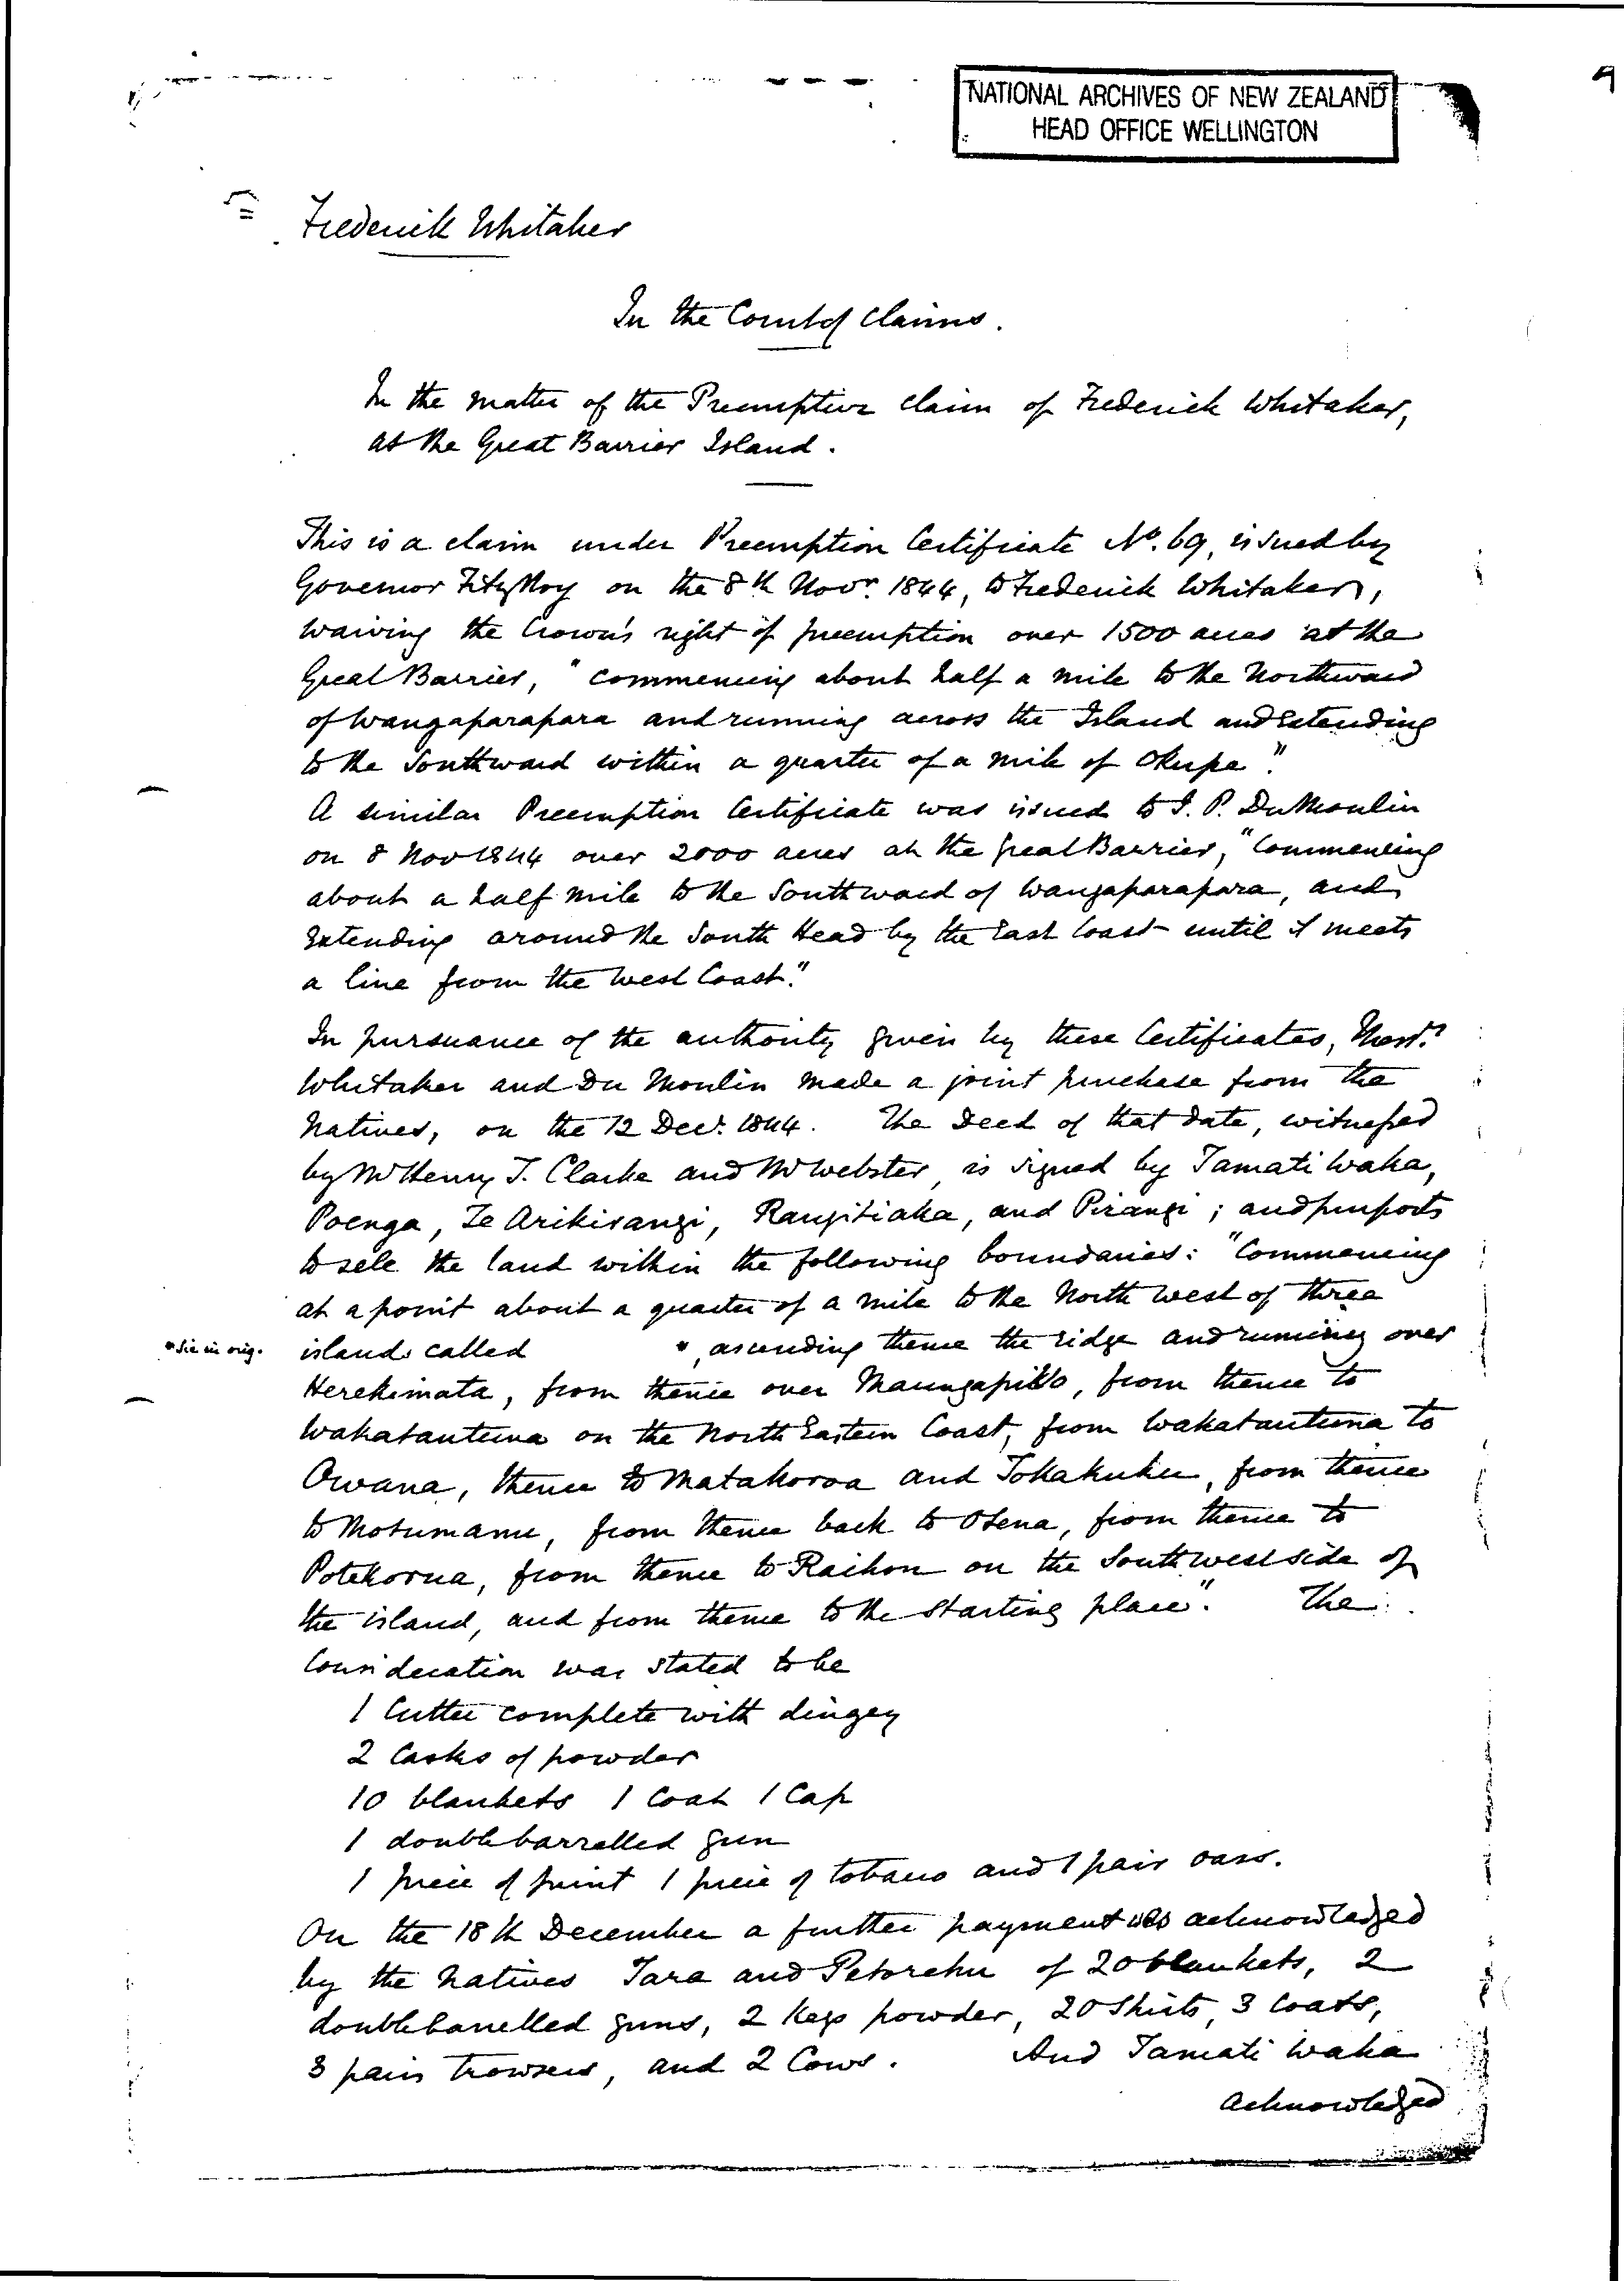 NATIONAL ARCHIVES OF NEW ZEALAND
HEAD OFFICE WELLINGTON
Frederick Whitaker
In the Court of Claims.
In the matter of the Preemptive claim of Frederick Whitaker,
at the Great Barrier Island.
This is a claim under Preemption Certificate No. 69, issued by
Governor FitzRoy on the 8th Novr. 1844, to Frederick Whitaker,
waiving the Crown's right of preemption over 1500 acres at the
Great Barrier, "commencing about half a mile to the Northward
of Wangaparapara and running across the Island and extending
to the Southward within a quarter of a mile of Okupe".
A similar Preemption Certificate was issued to J. P. Du Moulin
on 8 Nov 1844 over 2000 acres at the Great Barrier, "Commencing
about a half mile to the Southward of Wangaparapara, and
extending around the South Head by the East Coast until it meets
a line from the West Coast."
In pursuance of the authority given by these Certificates, Messrs.
Whitaker and Du Moulin made a joint purchase from the
Natives, on the 12 Decr. 1844. The Deed of that date, witnessed
by Mr Henry T. Clarke and Mr Webster, is signed by Tamati Waka,
Poenga, Te Arikirangi, Rangitiaka, and Pirangi; and purports
to sell the land within the following boundaries: "Commencing
at a point about a quarter of a mile to the North west of three
*Sic in orig. islands called *, ascending thence the ridge and running over
Herekimata, from thence over Maungapiko, from thence to
Wakatautuna on the North Eastern Coast, from Wakatautuna to
Owana, thence to Matakoroa and Tokakuku, from thence
to Motumanu, from thence back to Otena, from thence to
Potekorua, from thence to Raihon on the South west side of
the island, and from thence to the starting place". The
Consideration was stated to be
1 Cutter complete with dingey
2 Casks of powder
10 blankets 1 Coat 1 Cap
1 double barrelled gun
1 piece of print 1 piece of tobacco and 1 pair oars.
On the 18th December a further payment was acknowledged
by the Natives Tara and Petorehu of 20 blankets, 2
double barrelled guns, 2 kegs powder, 20 Shirts, 3 Coats,
3 pairs trowsers, and 2 Cows. And Tamati Waka
acknowledged